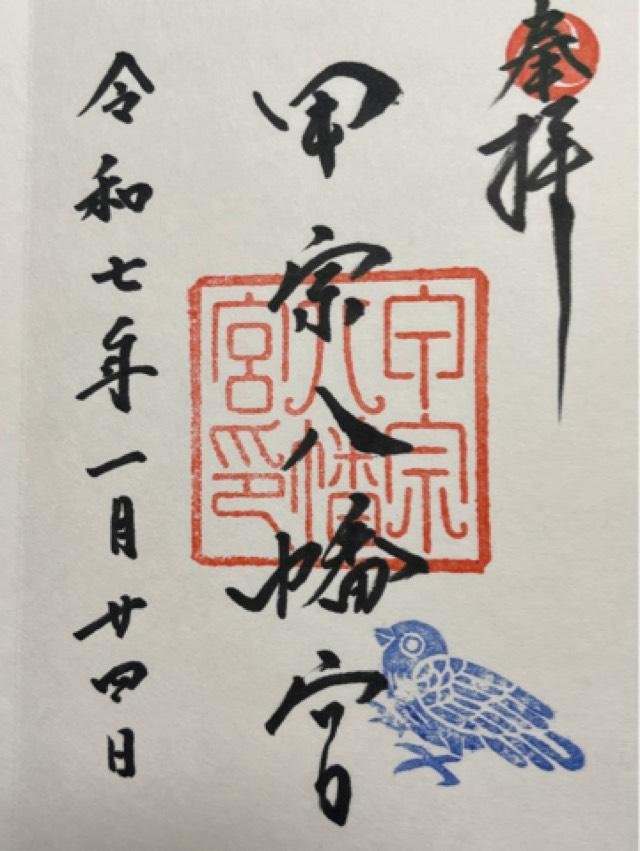 奉拝
甲宗八幡宮
甲宗八幡宮印
令和七年一月廿四日